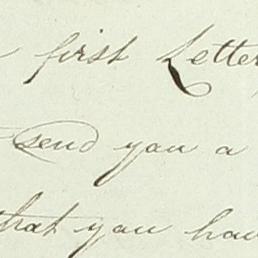 first Letter
send you a
that you hav